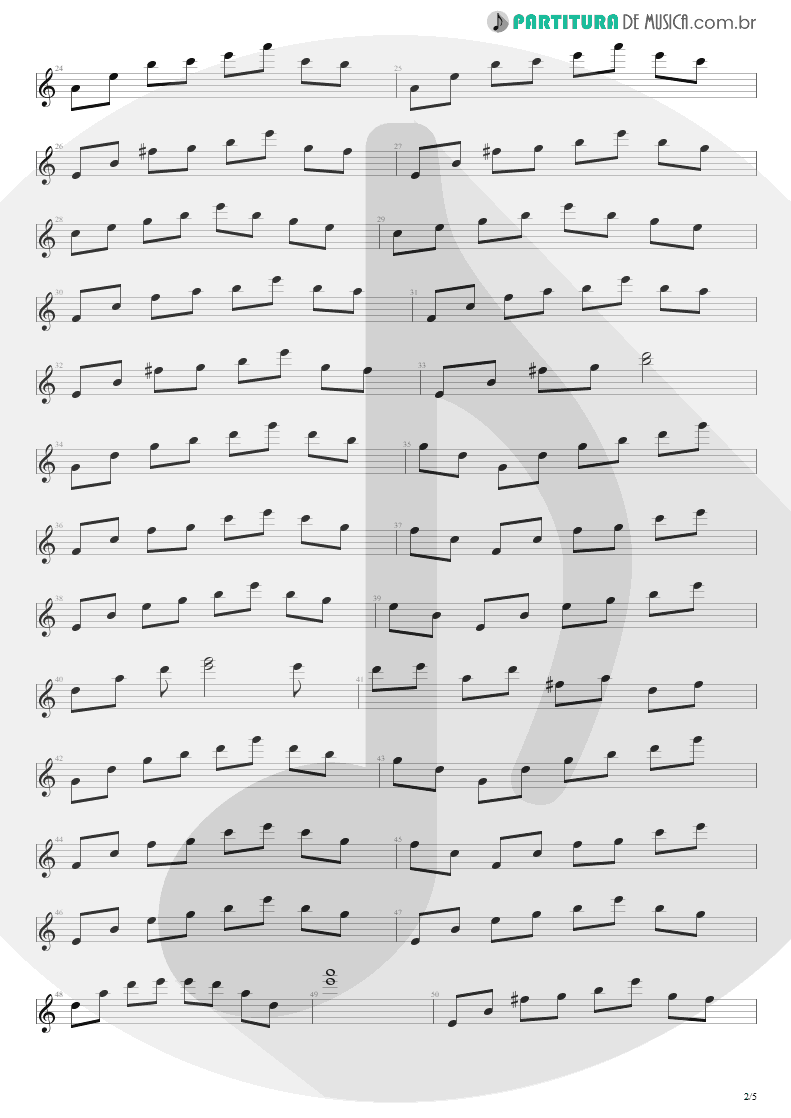 PARTITURA DE MUSICA.com.br
24 25
26 27
28 29
30 31
32 33
34 35
36 37
38 39
40 41
42 43
44 45
46 47
48 49 50
2/5